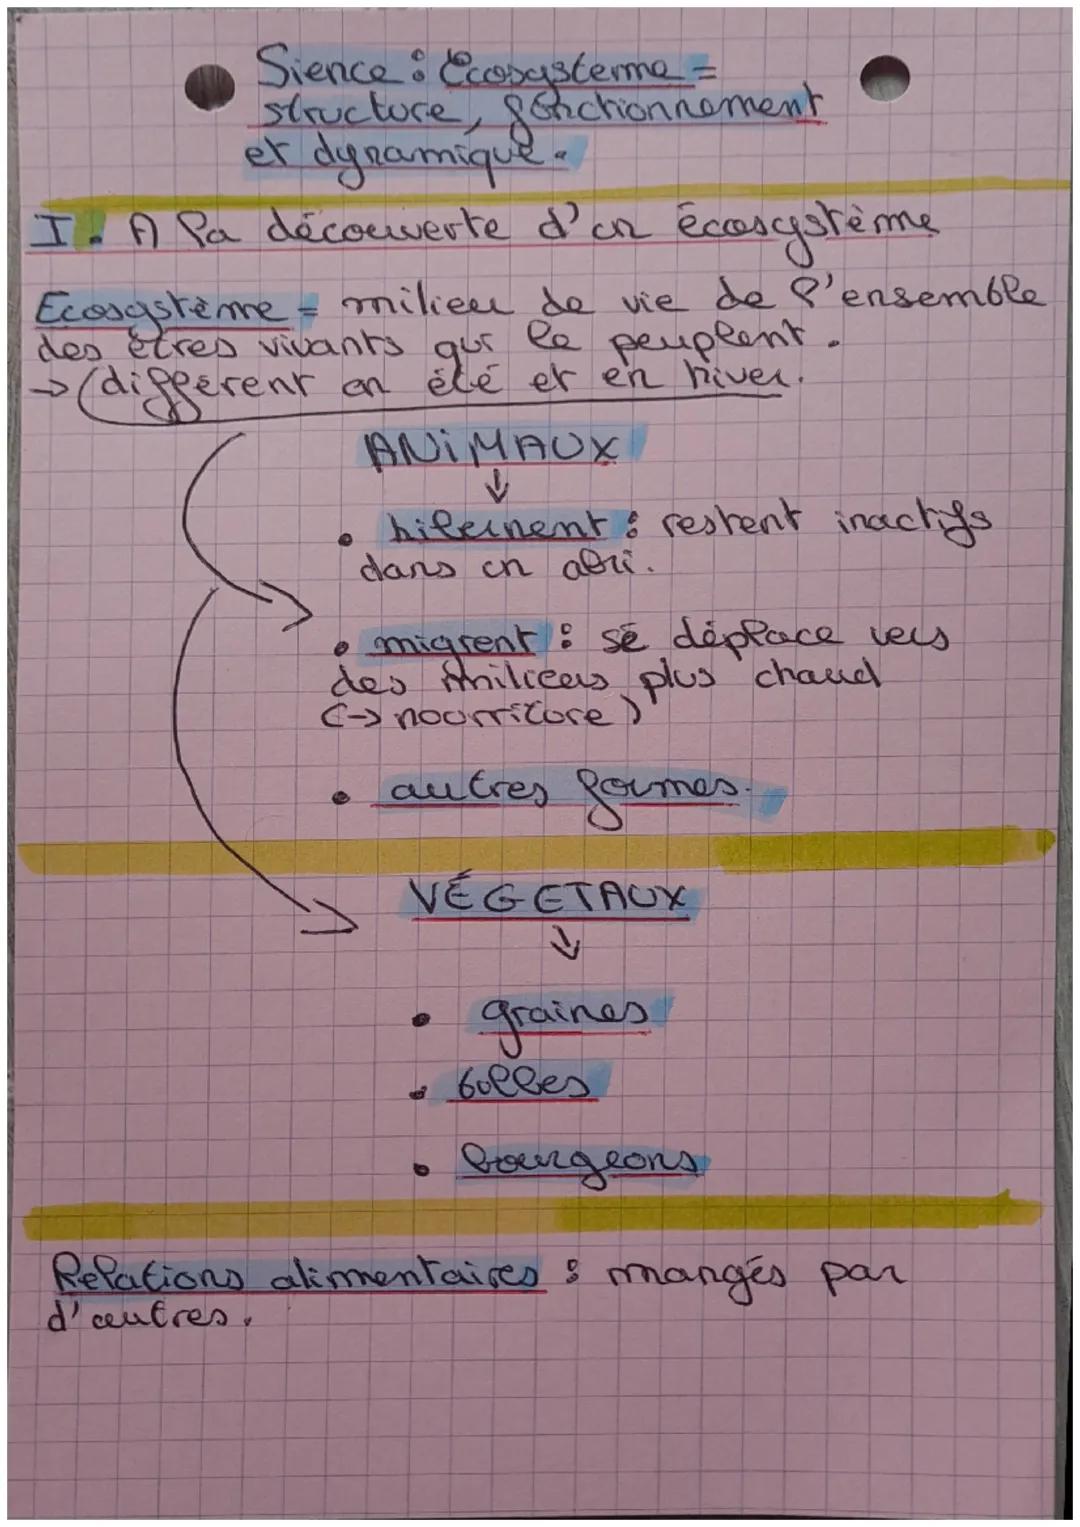 Sience : Ecosysteme =
structure, fonctionnement
et dynamique.
I. A la découverte d'un écosystème
Ecosystème = milieu de vie de l'ensemble
des êtres vivants qui le peuplent.
→ (différent en été et en hiver.
ANIMAUX
↓
• hibernent : restent inactifs
dans un abri.
• migrent : se déplace vers
des milieux plus chaud
(→ nourriture)
• autres formes.
VÉGETAUX
↓
• graines
• bulbes
• bourgeons
Relations alimentaires : mangés par
d'autres.